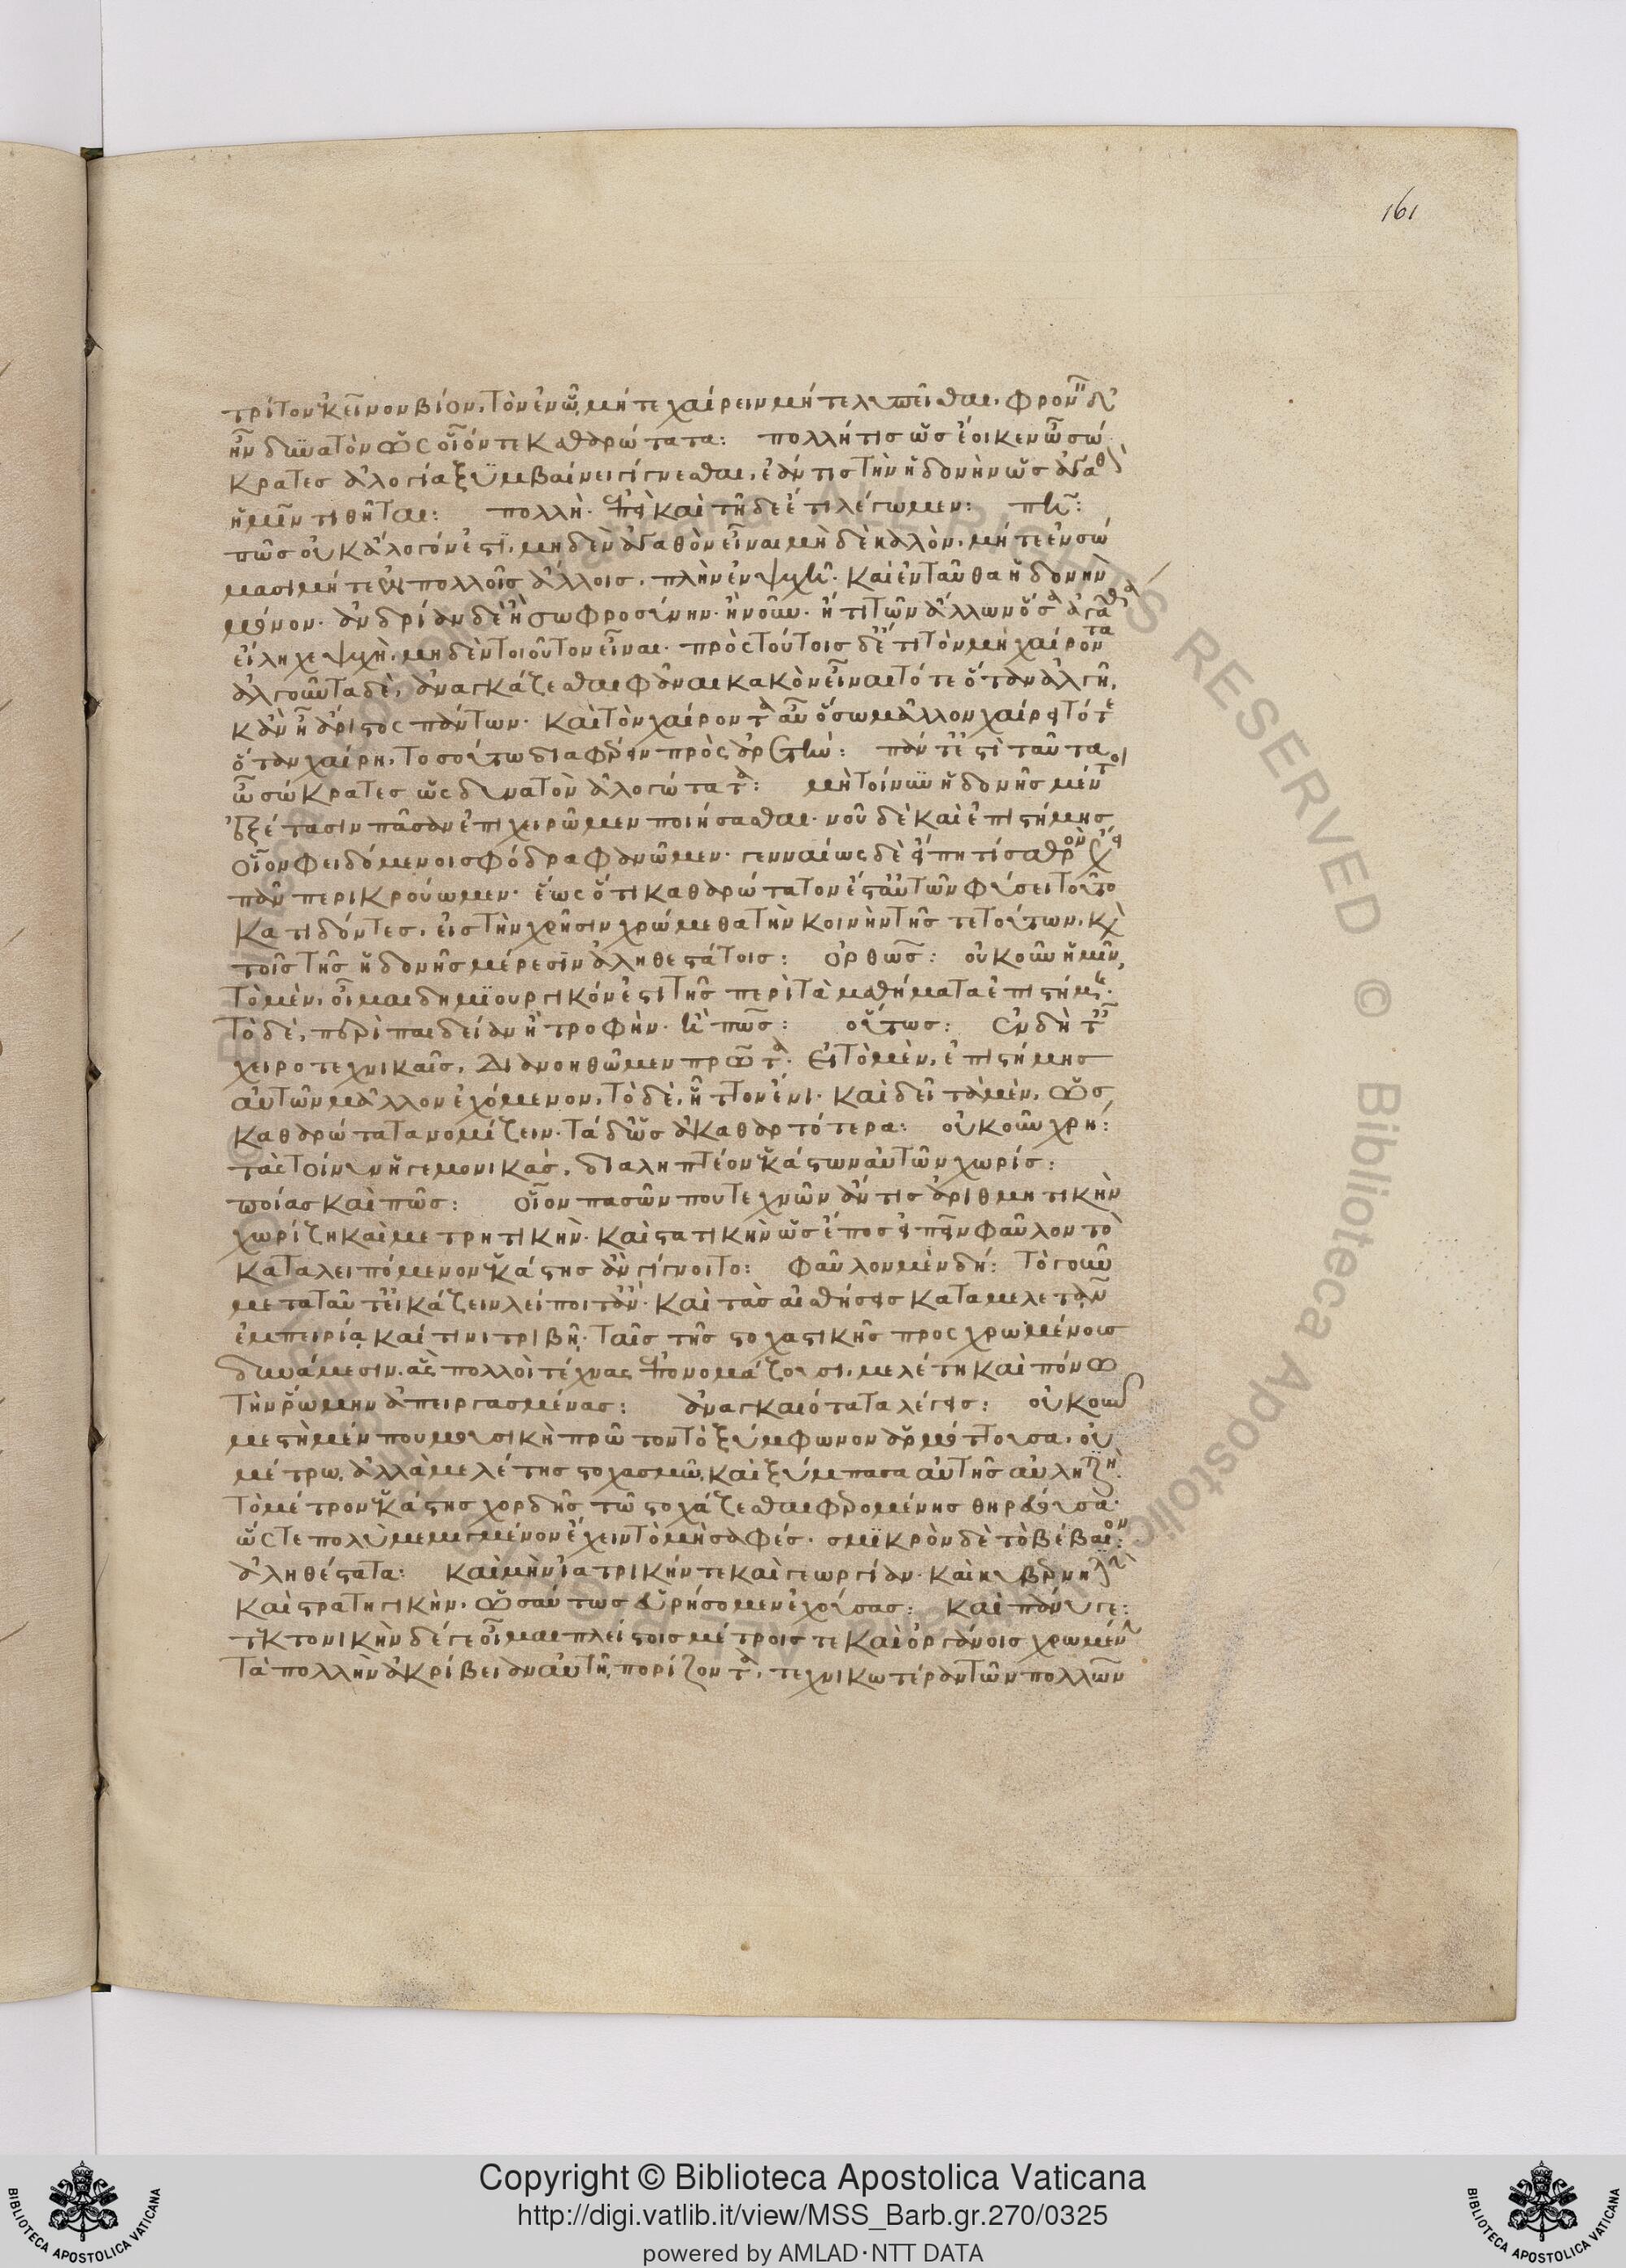 161
τρίτον ἐκεῖνον βίον, τὸν ἐν ᾧ μήτε χαίρειν μήτε λυπεῖσθαι, φρονεῖν δ'
ἦν δυνατὸν ὡς οἷόν τε καθαρώτατα: πολλή τις ὡς ἔοικεν ὦ σώ
κρατες ἀλογία ξυμβαίνει γίγνεσθαι, ἐάν τις τὴν ἡδονὴν ὡς ἀγαθὸν
ἡμῖν τιθῆται: πολλὴ. ἐπεὶ καὶ τῇδε ἔτι λέγωμεν: πῆ:
πῶς οὐκ ἄλογόν ἐστι, μηδὲν ἀγαθὸν εἶναι μηδὲ καλὸν, μήτε ἐν σώ
μασι μήτε ἐν πολλοῖς ἄλλοις, πλὴν ἐν ψυχῆ. καὶ ἐνταῦθα ἡδονὴν
μόνον. ἀνδρίαν δὲ ἢ σωφροσύνην. ἢ νοῦν. ἤ τι τῶν ἄλλων ὅσα ἀγαθὰ
εἴληχε ψυχὴ, μηδὲν τοιοῦτον εἶναι. πρὸς τούτοις δὲ ἔτι τὸν μὴ χαίροντα
ἀλγοῦντα δὲ, ἀναγκάζεσθαι φάναι κακὸν εἶναι τότε ὅταν ἀλγῆ,
κἂν ἦ ἄριστος πάντων. καὶ τὸν χαίροντα αὖ ὅσω μᾶλλον χαίρει τότε
ὅταν χαίρη, τοσούτω διαφέρειν πρὸς ἀρετήν: πάντ' ἐστὶ ταῦτα
ὦ σώκρατες ὡς δυνατὸν ἀλογώτατα: μὴ τοίνυν ἡδονῆς μέντοι
ἐξέτασιν πᾶσαν ἐπιχειρῶμεν ποιήσασθαι. νοῦ δὲ καὶ ἐπιστήμης
οἷον φειδόμενοι σφόδρα φανῶμεν. γενναίως δὲ εἴ πη τι σαθρὸν ἔχει
πᾶν περικρούωμεν. ἕως ὅτι καθαρώτατον ἐστ' αὐτῶν φύσει τοῦτο
κατιδόντες, εἰς τὴν χρῆσιν χρώμεθα τὴν κοινὴν τῆς τε τούτων, καὶ
τοῖς τῆς ἡδονῆς μέρεσιν ἀληθεστάτοις: ὀρθῶς: οὐκοῦν ἡμῖν,
τὸ μὲν, οἶμαι δημιουργικόν ἐστι τῆς περὶ τὰ μαθήματα ἐπιστήμης.
τὸ δὲ, περὶ παιδείαν ἢ τροφὴν. ἢ πῶς: οὕτως: ἐν δὴ ταῖς
χειροτεχνικαῖς, διανοηθῶμεν πρῶτα. εἰ τὸ μὲν, ἐπιστήμης
αὐτῶν μᾶλλον ἐχόμενον, τὸ δὲ, ἧττον ἔνι. καὶ δεῖ τὰ μὲν, ὡς
καθαρώτατα νομίζειν. τὰ δ' ὡς ἀκαθαρτότερα: οὐκοῦν χρή:
τὰς τοίνυν ἡγεμονικὰς, διαληπτέον ἑκάστων αὐτῶν χωρίς:
ποίας καὶ πῶς: οἷον πασῶν που τεχνῶν ἄν τις ἀριθμητικὴν
χωρίζη καὶ μετρητικὴν. καὶ στατικὴν ὡς ἔπος εἰπεῖν φαῦλον τὸ
καταλειπόμενον ἑκάστης ἂν γίγνοιτο: φαῦλον μὲν δή: τὸ γοῦν
μετὰ ταῦτ' εἰκάζειν λείποιτ' ἄν. καὶ τὰς αἰσθήσεις καταμελετᾶν
ἐμπειρία καί τινι τριβῆ. ταῖς τῆς στοχαστικῆς προσχρωμένους
δυνάμεσιν. ἃς πολλοὶ τέχνας ἐπονομάζουσι, μελέτη καὶ πόνω
τὴν ῥώμην ἀπειργασμένας: ἀναγκαιότατα λέγεις: οὐκοῦν
μεστὴ μέν που μουσικὴ πρῶτον τὸ ξύμφωνον ἁρμόττουσα, οὐ
μέτρω, ἀλλὰ μελέτης στοχασμῶ, καὶ ξύμπασα αὐτῆς αὐλητικὴ.
τὸ μέτρον ἑκάστης χορδῆς τῶ στοχάζεσθαι φερομένης θηρεύουσα.
ὥστε πολὺ μεμιγμένον ἔχειν τὸ μὴ σαφές. σμικρὸν δὲ τὸ βέβαιον:
ἀληθέστατα: καὶ μὴν ἰατρικήν τε καὶ γεωργίαν. καὶ κυβερνητικὴν
καὶ στρατηγικὴν. ὡσαύτως εὑρήσομεν ἐχούσας: καὶ πάνυ γε:
τεκτονικὴν δέ γε οἶμαι πλείστοις μέτροις τε καὶ ὀργάνοις χρωμένην
τὰ πολλὴν ἀκρίβειαν αὐτῆ, πορίζοντα, τεχνικωτέραν τῶν πολλῶν
Copyright © Biblioteca Apostolica Vaticana
http://digi.vatlib.it/view/MSS_Barb.gr.270/0325
powered by AMLAD·NTT DATA